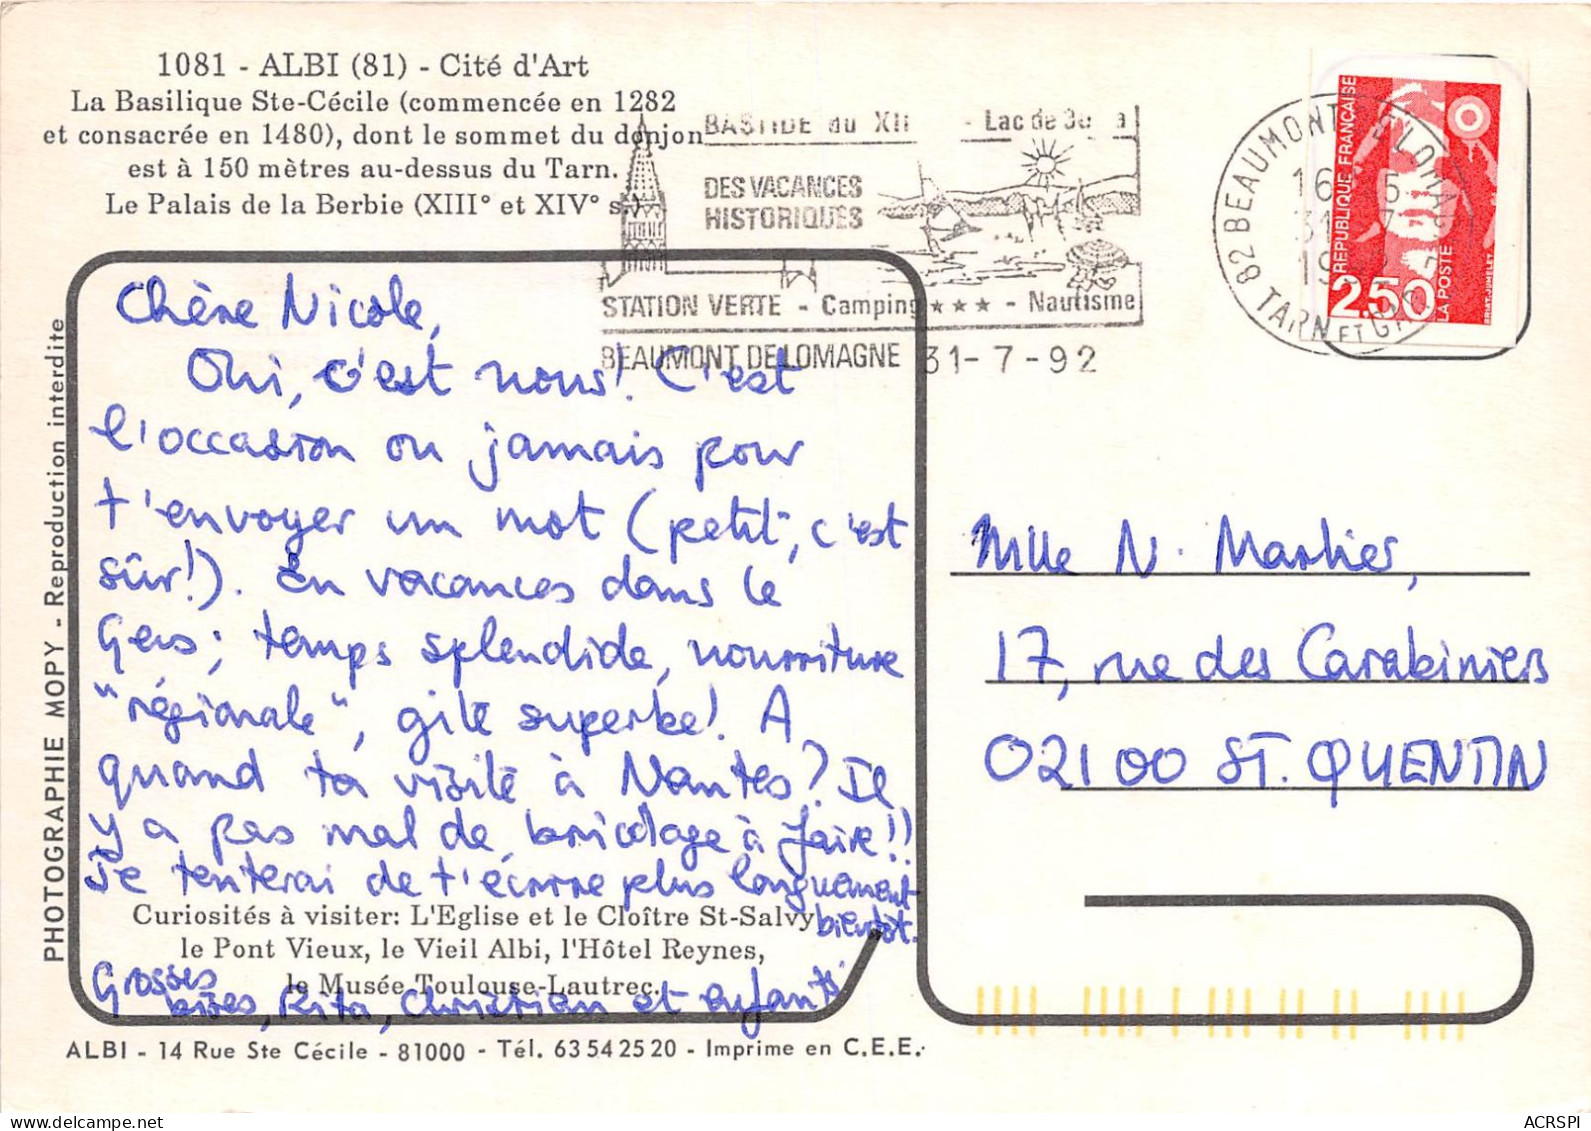 1081 - ALBI (81) - Cité d'Art
La Basilique Ste-Cécile (commencée en 1282
et consacrée en 1480), dont le sommet du donjon
est à 150 mètres au-dessus du Tarn.
Le Palais de la Berbie (XIII° et XIV° s.)
BASTIDE du XII - Lac de
DES VACANCES
HISTORIQUES
STATION VERTE - Camping ★★★ - Nautisme
BEAUMONT DE LOMAGNE 31-7-92
82 BEAUMONT DE LOMAGNE
TARN ET GAR
REPUBLIQUE FRANÇAISE
2,50
LA POSTE
BRIAT-JUMELET
PHOTOGRAPHIE MOPY - Reproduction interdite
Chère Nicole,
Oui, c'est nous! C'est
l'occasion ou jamais pour
t'envoyer un mot (petit, c'est
sûr!). En vacances dans le
Gers; temps splendide, nourriture
"régionale", gite superbe! A
quand ta visite à Nantes? Il
y a pas mal de bricolage à faire!!
Je tenterai de t'écrire plus longuement
bientôt.
Grosses
bises, Rita, Christian et enfants
Curiosités à visiter: L'Eglise et le Cloître St-Salvy
le Pont Vieux, le Vieil Albi, l'Hôtel Reynes,
le Musée Toulouse-Lautrec.
Mlle N. Marlier,
17, rue des Carabiniers
02100 ST. QUENTIN
ALBI - 14 Rue Ste Cécile - 81000 - Tél. 63 54 25 20 - Imprime en C.E.E.
ACRSPI